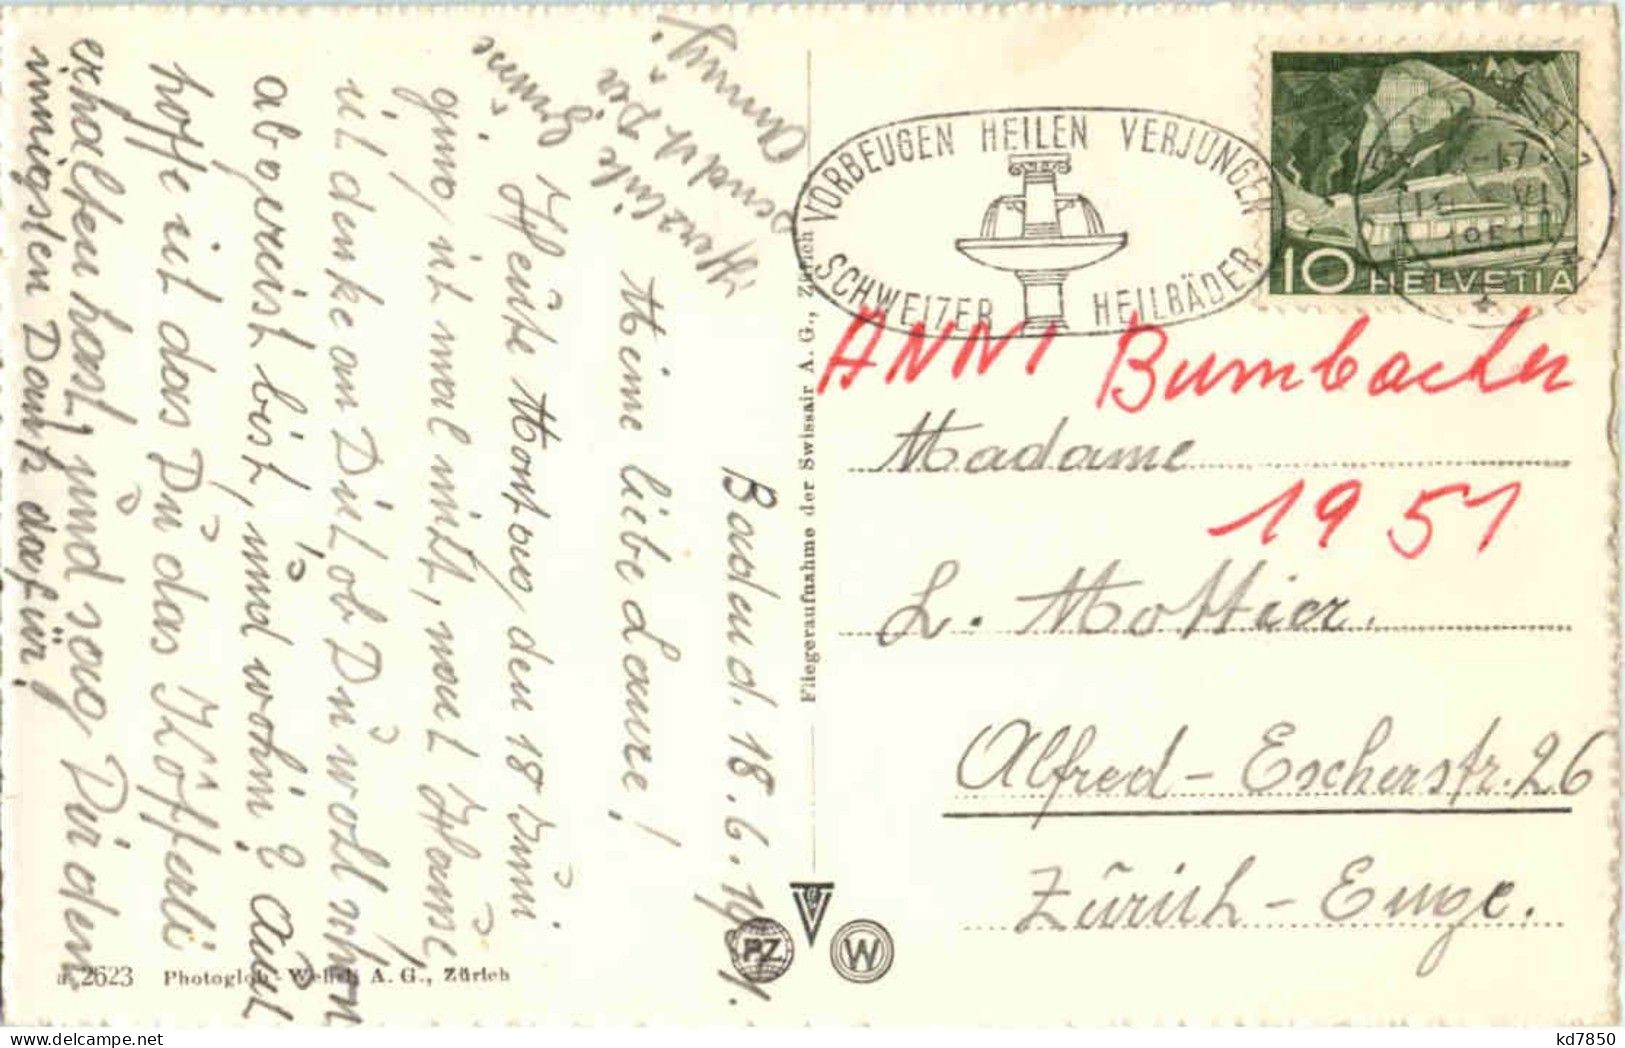 Baden d. 18. 6. 1951.
Meine liebe Laure!
Heute Montag den 18 Juni
ging ich mal mit, nach Hause,
ich denke an Dich ob Du wohl schon
abgereist bist, und wohin? Auch
hoffe ich das Du das Köfferli
erhalten hast, und sag Dir den
innigsten Dank dafür!
Herzliche Grüsse
sendet Dir
Anny
VORBEUGEN HEILEN VERJÜNGEN
SCHWEIZER HEILBÄDER
1951
10 HELVETIA
ANNI Bumbacher
Madame
1951
L. Mottier.
Alfred-Escherstr. 26
Zürich-Enge.
Fliegeraufnahme der Swissair A. G., Zürich
PZ
W
2623 Photoglob-Wehrli A. G., Zürich
kd7850